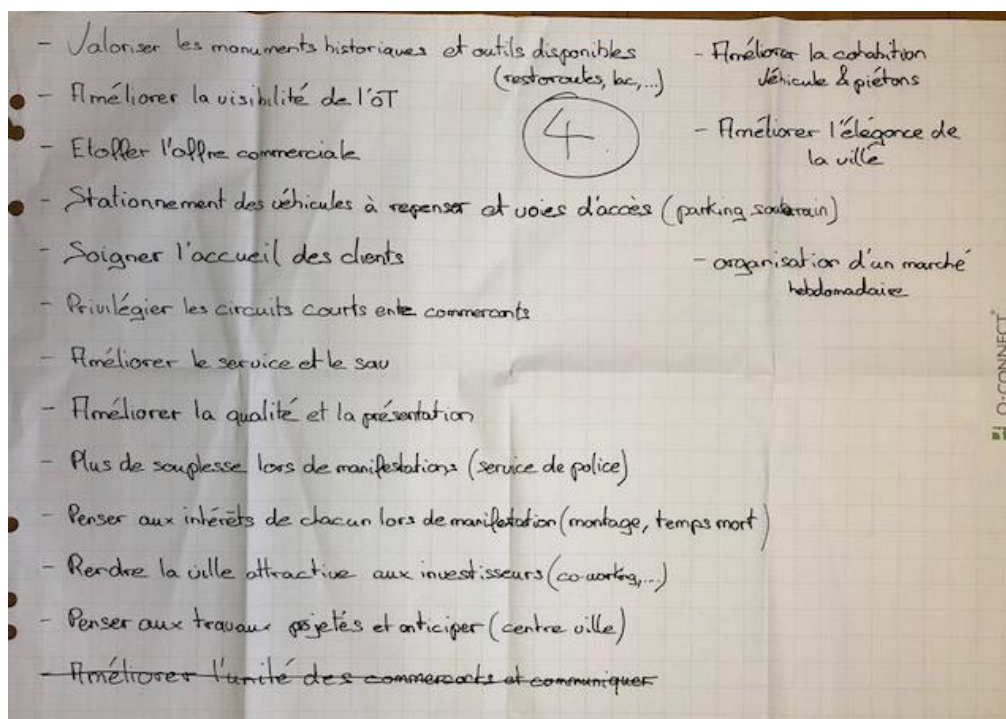 - Valoriser les monuments historiques et outils disponibles
(restoroutes, lac,...)
- Améliorer la visibilité de l'OT
4
- Etoffer l'offre commerciale
- Stationnement des véhicules à repenser et voies d'accès (parking souterrain)
- Soigner l'accueil des clients
- Privilégier les circuits courts ente commercants
- Améliorer le service et le sav
- Améliorer la qualité et la présentation
- Plus de souplesse lors de manifestations (service de police)
- Penser aux intérêts de chacun lors de manifestation (montage, temps mort)
- Rendre la ville attractive aux investisseurs (co-working,...)
- Penser aux travaux projetés et anticiper (centre ville)
- Améliorer l'unité des commercants et communiquer
- Améliorer la cohabition
véhicule & piétons
- Améliorer l'élégance de
la ville
- organisation d'un marché
hebdomadaire
O-CONNECT